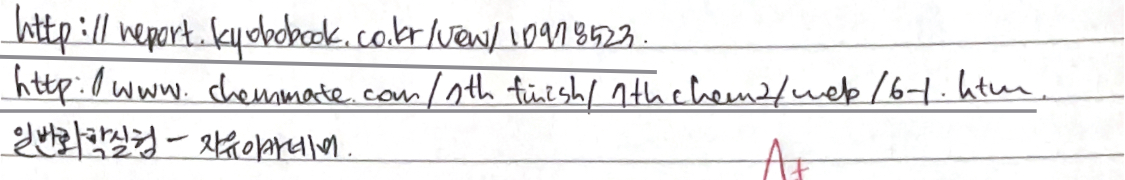 http://report.kyobobook.co.kr/view/10978523.
http://www.chemmate.com/7th finish/7thchem2/web/6-1.htm.
일반화학실험 - 자유아카데미.
A+